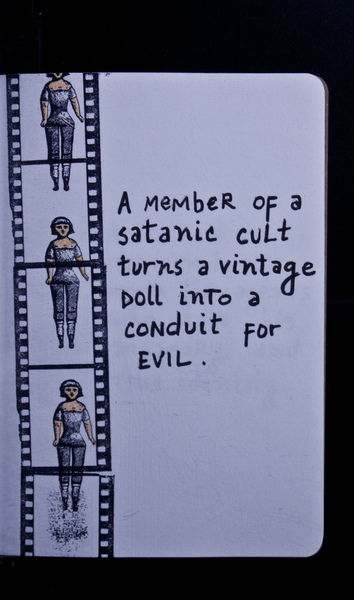 A MEMBER OF a
satanic cult
turns a vintage
DOLL into a
conduit for
EVIL.